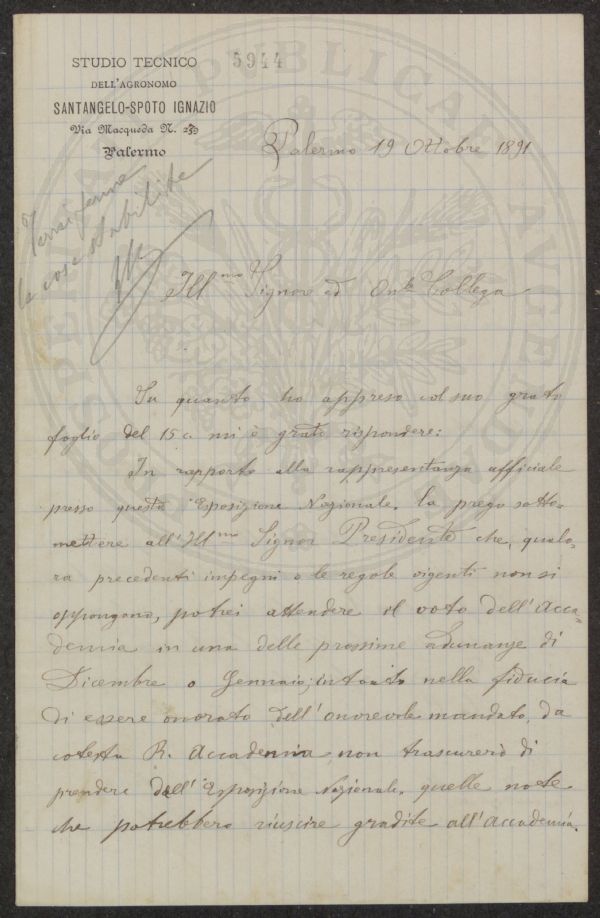 STUDIO TECNICO
DELL'AGRONOMO
SANTANGELO-SPOTO IGNAZIO
Via Macqueda N. 259
Palermo
5944
Palermo 19 Ottobre 1891
le cose stabilite
Ill.mo Signore ed On.le Collega
In quanto ho appreso col suo grato
foglio del 15 c. mi è grato rispondere:
In rapporto alla rappresentanza officiale
presso questa Esposizione Nazionale, la prego sotto-
mettere all'Ill.mo Signor Presidente che, qualo-
ra precedenti impegni o le regole vigenti non si
oppongano, potrei attendere il voto dell'Acca-
demia in una delle prossime adunanze di
Dicembre o Gennaio; intanto nella fiducia
di essere onorato dell'onorevole mandato, da
cotesta R. Accademia, non trascurerò di
prendere dall'Esposizione Nazionale, quelle note
che potrebbero riuscire gradite all'Accademia.